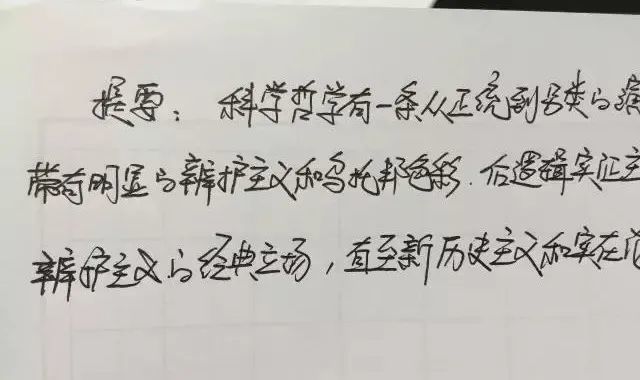 提要：科学哲学有一条从正统到另类的
带有明显的辨护主义和乌托邦色彩.后逻辑实证主
辨护主义的经典立场，直至新历史主义和实在